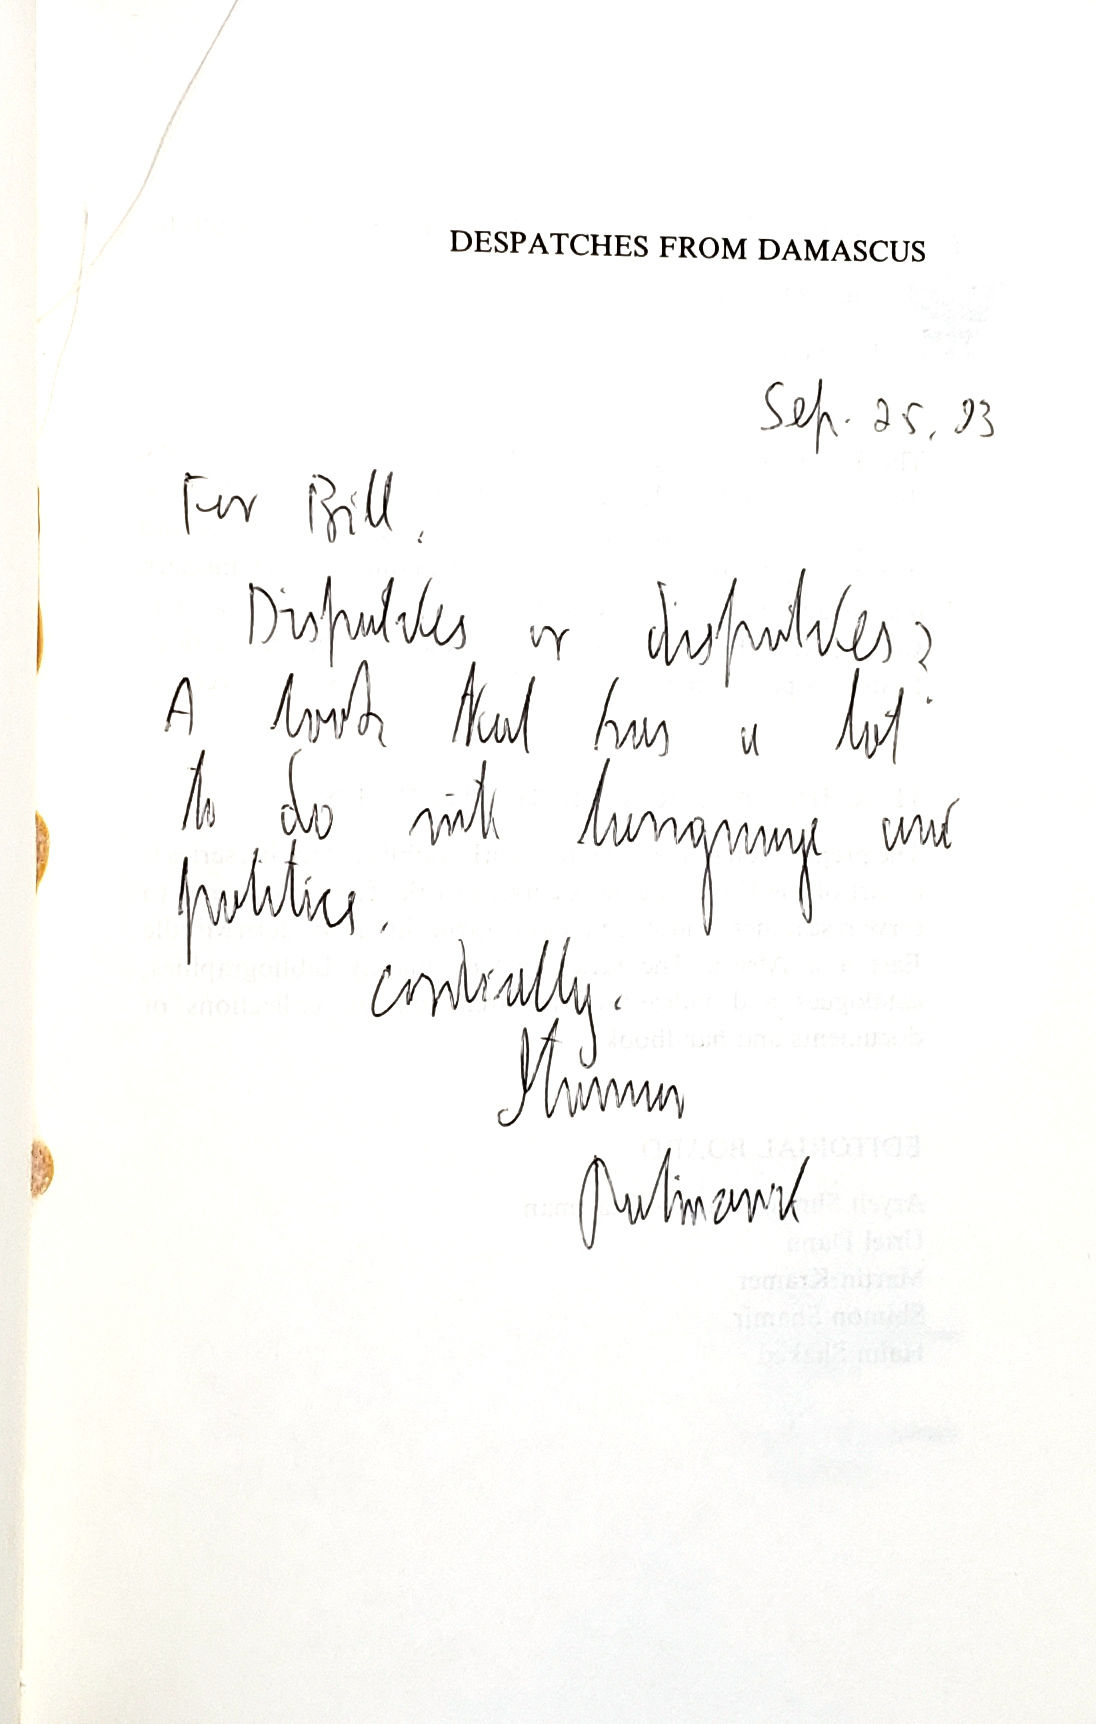 DESPATCHES FROM DAMASCUS
Sep. 25, 93
For Bill,
Dispatches or dispatches?
A book that has a lot
to do with language and
politics.
cordially,
Itamar